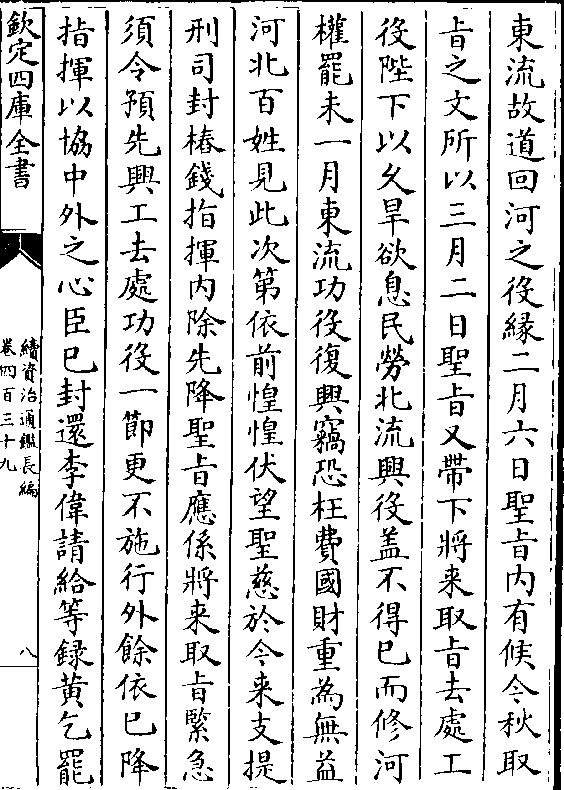 東流故道回河之役縁二月六日聖㫖内有候今秋取
㫖之文所以三月二日聖㫖又帶下將来取㫖去處工
役陛下以久旱欲息民勞北流興役盖不得已而修河
權罷未一月東流功役復興竊恐枉費國財重為無益
河北百姓見此次第依前惶惶伏望聖慈於今来支提
刑司封樁錢指揮内除先降聖㫖應係將来取㫖緊急
須令預先興工去處功役一節更不施行外餘依已降
指揮以協中外之心臣已封還李偉請給等録黄乞罷
欽定四庫全書
續資治通鑑長編
卷四百三十九
八